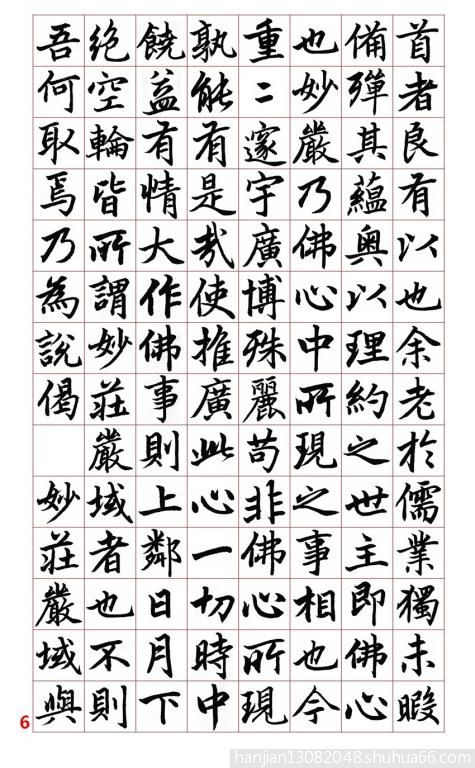 首者良有以也余老於儒業獨未暇
備殫其蘊奥以理約之世主即佛心
也妙嚴乃佛心中所現之事相也今
重二邃宇廣博殊麗苟非佛心所現
孰能有是哉使推廣此心一切時中
饒益有情大作佛事則上鄰日月下
絶空輪皆所謂妙莊嚴域者也不則
吾何取焉乃為說偈 妙莊嚴域與
6
hanjian13082048.shuhua66.com